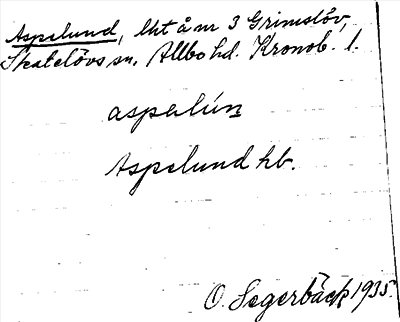 Aspelund, lht å nr 3 Grimslöv,
Skatelövs sn. Allbo hd. Kronob. l.
aspalún
Aspelund hb.
O. Segerbäck 1935.